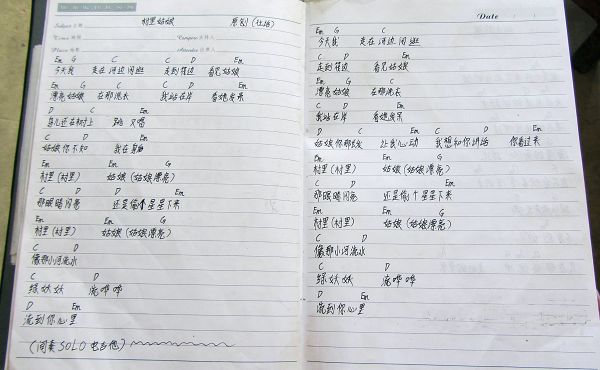 村里姑娘 原创(杜活)
Subject 主题
Compere 主持人
Time 时间
Place 地点
Attendee 出席人
Em G C C D Em
今天我 走在河边闲逛 走到筏边 看见姑娘
Em G C C D Em
漂亮姑娘 在那洗衣 我站在岸 看她发呆
D C Em
鸟儿还在树上 跳 又唱
C D Em
姑娘你不知 我在身边
Em Em G
村里(村里) 姑娘(姑娘漂亮)
C D D Em
那眼睛闪亮 还是偷个星星下来
Em Em G
村里(村里) 姑娘(姑娘漂亮)
C D
像那小河流水
C D
绿妖妖 流哗哗
D Em
流到你心里
(间奏 SOLO 电吉他)
Date
Em G C
今天我 走在河边闲逛
C D Em
走到筏边 看见姑娘
Em G C
漂亮姑娘 在那洗衣
C D Em
我站在岸 看她发呆
D C D Em
姑娘你那么 让我心动 我想和你讲话 你看过来
Em Em G
村里(村里) 姑娘(姑娘漂亮)
C D D Em
那眼睛闪亮 还是偷个星星下来
Em Em G
村里(村里) 姑娘(姑娘漂亮)
C D
像那小河流水
C D
绿妖妖 流哗哗
D Em
流到你心里